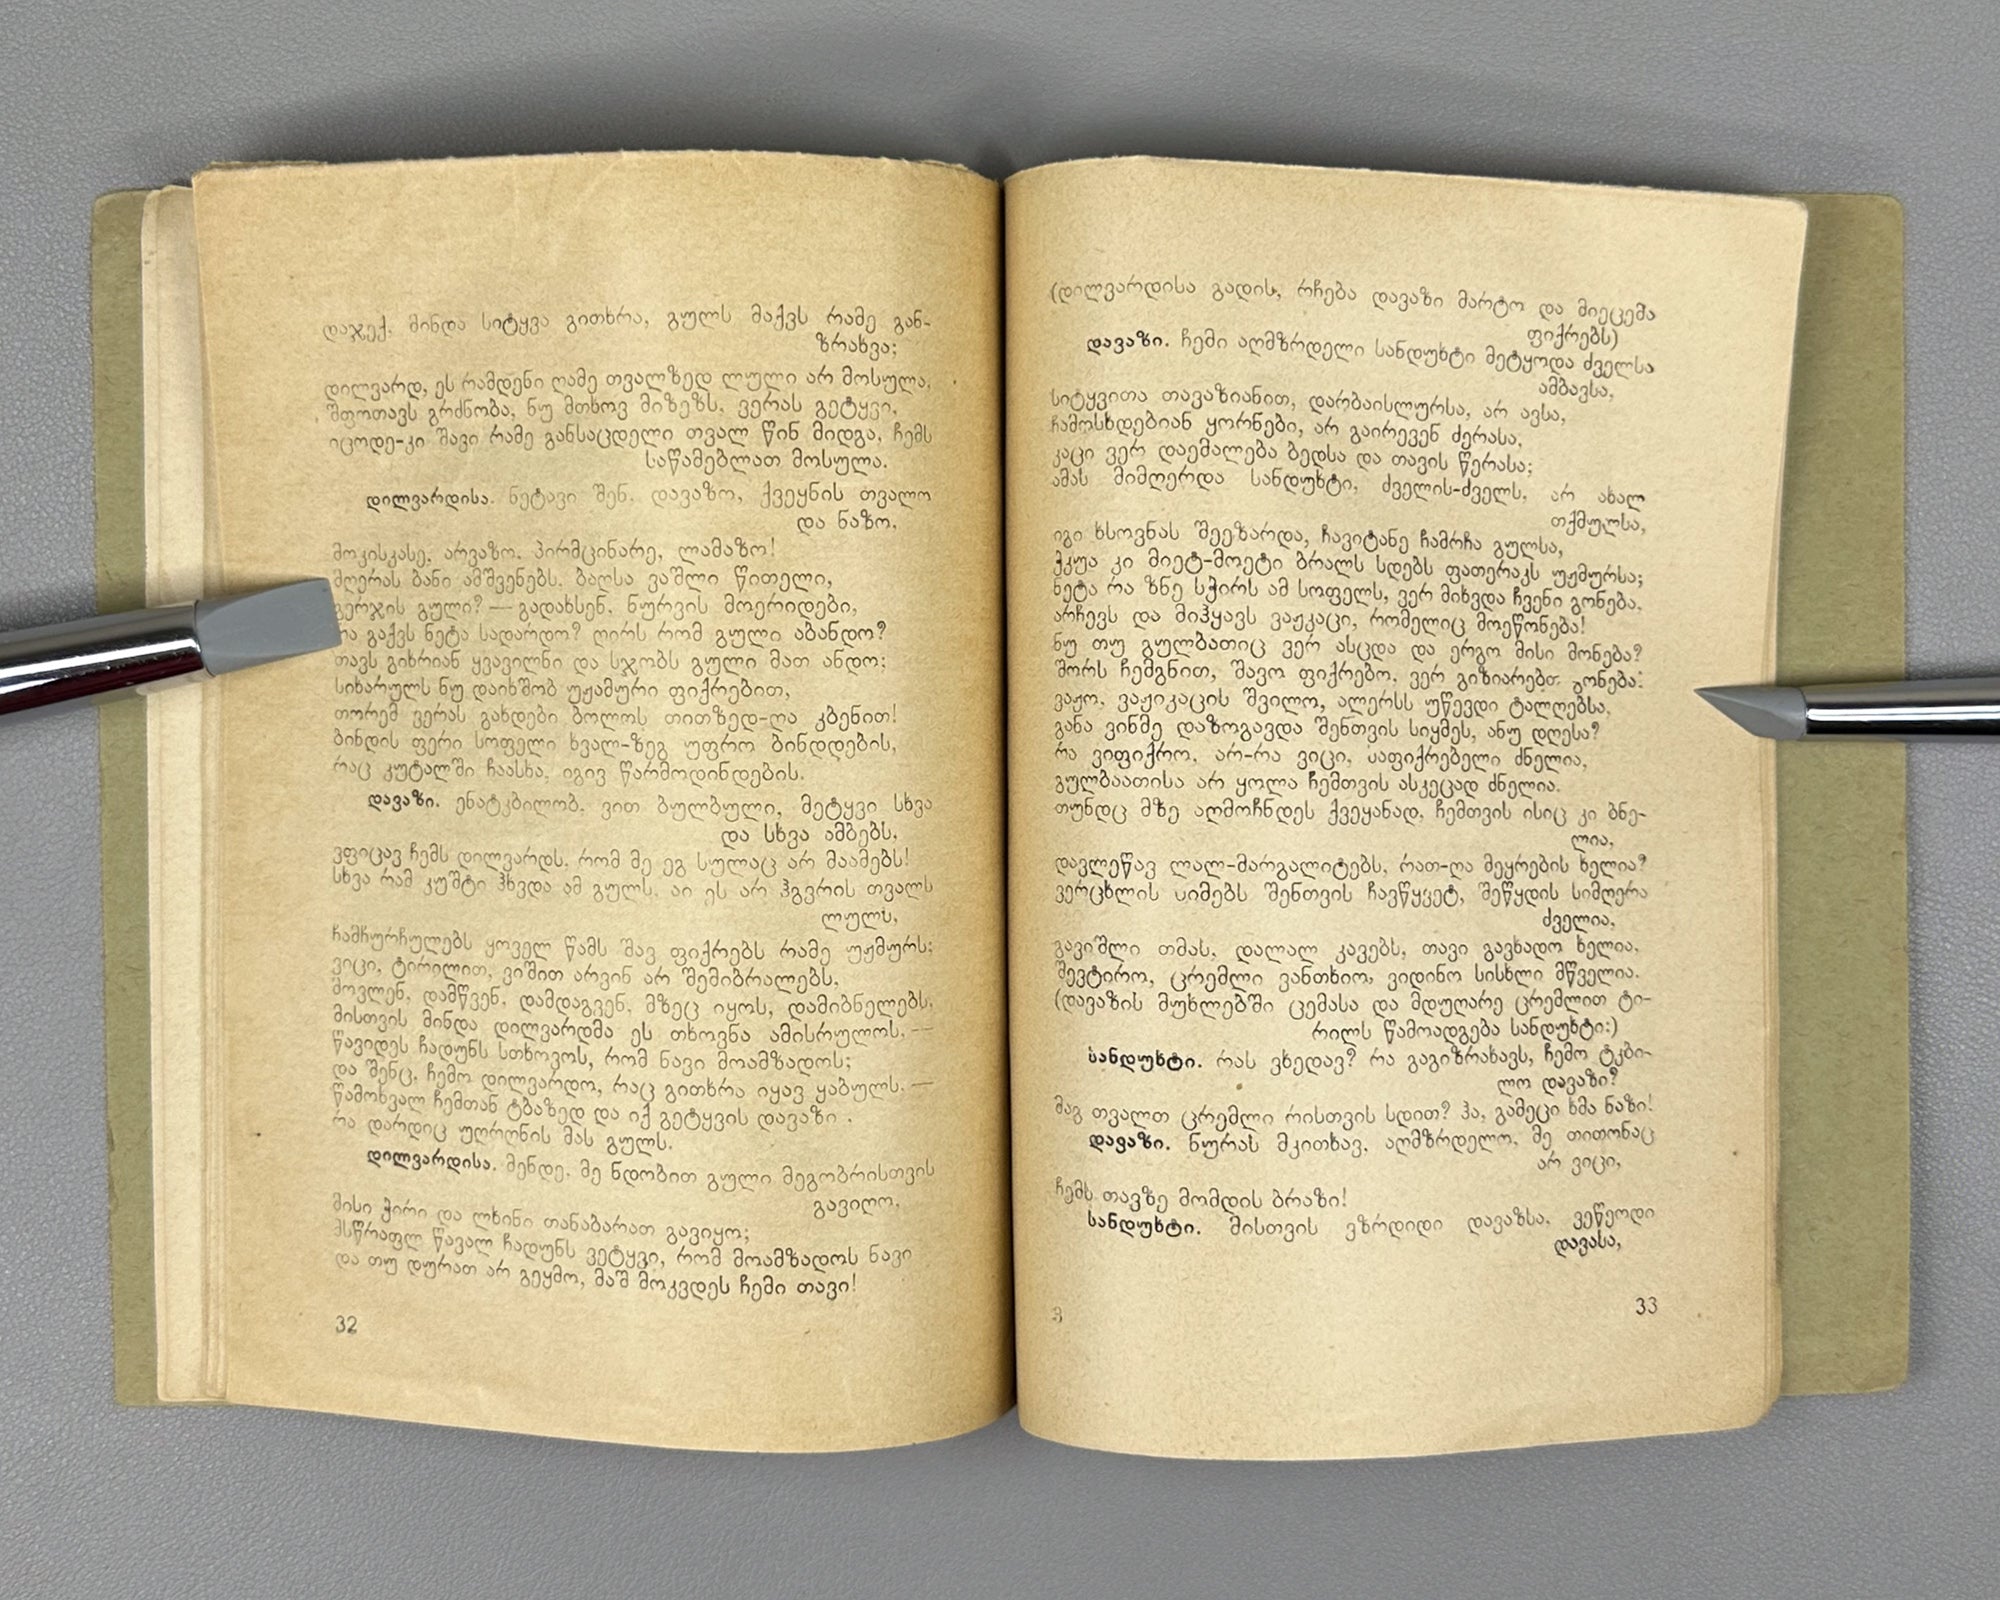 დაჯექ. მინდა სიტყვა გითხრა, გულს მაქვს რამე გან-
ზრახვა;
დილვარდ, ეს რამდენი ღამე თვალზედ ლული არ მოსულა,
შფოთავს გრძნობა, ნუ მთხოვ მიზეზს, ვერას გეტყვი,
იცოდე-კი შავი რამე განსაცდელი თვალ წინ მიდგა, ჩემს
საწამებლათ მოსულა.
დილვარდისა. ნეტავი შენ, დავაზო, ქვეყნის თვალო
და ნაზო,
მოკისკასე, არვაზო, პირმცინარე, ლამაზო!
მღერას ბანი ამშვენებს, ბაღსა ვაშლი წითელი,
გერჯის გული? — გადახსენ, ნურვის მოერიდები,
რა გაქვს ნეტა სადარდო? ღირს რომ გული აბანდო?
თავს გიხრიან ყვავილნი და სჯობს გული მათ ანდო;
სიხარულს ნუ დაიხშობ უჟამური ფიქრებით,
თორემ ვერას გახდები ბოლოს თითზედ-ღა კბენით!
ბინდის ფერი სოფელი ხვალ-ზეგ უფრო ბინდდების,
რაც კუტალში ჩაასხა, იგივ წარმოდინდების.
დავაზი. ენატკბილობ, ვით ბულბული, მეტყვი სხვა
და სხვა ამბებს,
ვფიცავ ჩემს დილვარდს, რომ მე ეგ სულაც არ მაამებს!
სხვა რამ კუშტი ჰხვდა ამ გულს, აი ეს არ ჰგვრის თვალს
ლულს,
ჩამჩურჩულებს ყოველ წამს შავ ფიქრებს რამე უჟმურს;
ვიცი, ტირილით, ვიშით არვინ არ შემიბრალებს,
მოვლენ, დამწვენ, დამდაგვენ, მზეც იყოს, დამიბნელებს,
მისთვის მინდა დილვარდმა ეს თხოვნა ამისრულოს, —
წავიდეს ჩადუნს სთხოვოს, რომ ნავი მოამზადოს;
და შენც, ჩემო დილვარდო, რაც გითხრა იყავ ყაბულს, —
წამოხვალ ჩემთან ტბაზედ და იქ გეტყვის დავაზი .
რა დარდიც უღრღნის მას გულს.
დილვარდისა. მენდე, მე ნდობით გული მეგობრისთვის
გავიღო,
მისი ჭირი და ლხინი თანაბარათ გავიყო;
მსწრაფლ წავალ ჩადუნს ვეტყვი, რომ მოამზადოს ნავი
და თუ დურათ არ გეყმო, მაშ მოკვდეს ჩემი თავი!
32
(დილვარდისა გადის, რჩება დავაზი მარტო და მიეცემა
ფიქრებს)
დავაზი. ჩემი აღმზრდელი სანდუხტი მეტყოდა ძველსა
ამბავსა,
სიტყვითა თავაზიანით, დარბაისლურსა, არ ავსა,
ჩამოსხდებიან ყორნები, არ გაირევენ ძერასა,
კაცი ვერ დაემალება ბედსა და თავის წერასა;
ამას მიმღერდა სანდუხტი, ძველის-ძველს, არ ახალ
თქმულსა,
იგი ხსოვნას შეეზარდა, ჩავიტანე ჩამრჩა გულსა,
ჭკუა კი მიეტ-მოეტი ბრალს სდებს ფათერაკს უჟმურსა;
ნეტა რა ზნე სჭირს ამ სოფელს, ვერ მიხვდა ჩვენი გონება,
არჩევს და მიჰყავს ვაჟკაცი, რომელიც მოეწონება!
ნუ თუ გულბათიც ვერ ასცდა და ერგო მისი მონება?
შორს ჩემგნით, შავო ფიქრებო, ვერ გიზიარებთ გონება:
ვაჟო, ვაჟიკაცის შვილო, ალერსს უწევდი ტალღებსა,
განა ვინმე დაზოგავდა შენთვის სიყმეს, ანუ დღესა?
რა ვიფიქრო, არ-რა ვიცი, საფიქრებელი ძნელია,
გულბაათისა არ ყოლა ჩემთვის ასკეცად ძნელია.
თუნდც მზე აღმოჩნდეს ქვეყანად, ჩემთვის ისიც კი ბნე-
ლია,
დავლეწავ ლალ-მარგალიტებს, რათ-ღა მეყრების ხელია?
ვერცხლის სიმებს შენთვის ჩავწყვეტ, შეწყდის სიმღერა
ძველია,
გავიშლი თმას, დალალ კავებს, თავი გავხადო ხელია,
შევტირო, ცრემლი ვანთხიო, ვიდინო სისხლი მწველია.
(დავაზის მუხლებში ცემასა და მდუღარე ცრემლით ტი-
რილს წამოადგება სანდუხტი:)
სანდუხტი. რას ვხედავ? რა გაგიზრახავს, ჩემო ტკბი-
ლო დავაზი?
მაგ თვალთ ცრემლი რისთვის სდით? ჰა, გამეცი ხმა ნაზი!
დავაზი. ნურას მკითხავ, აღმზრდელო, მე თითონაც
არ ვიცი,
ჩემს თავზე მომდის ბრაზი!
სანდუხტი. მისთვის ვზრდიდი დავაზსა, ვეწეოდი
დავასა,
3
33